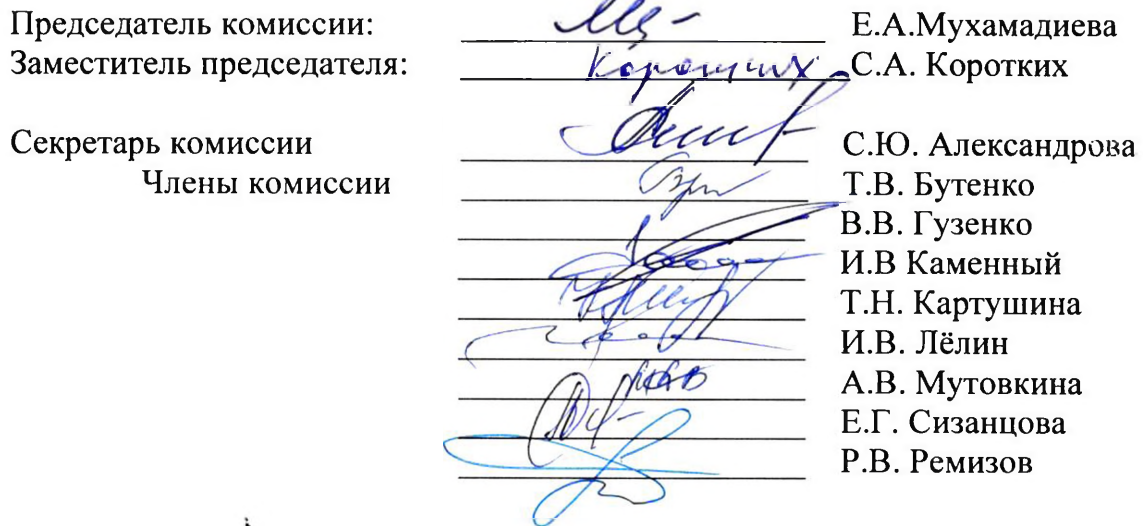 Председатель комиссии: Е.А.Мухамадиева
Заместитель председателя: Коротких С.А. Коротких
Секретарь комиссии С.Ю. Александрова
Члены комиссии Т.В. Бутенко
В.В. Гузенко
И.В Каменный
Т.Н. Картушина
И.В. Лёлин
А.В. Мутовкина
Е.Г. Сизанцова
Р.В. Ремизов